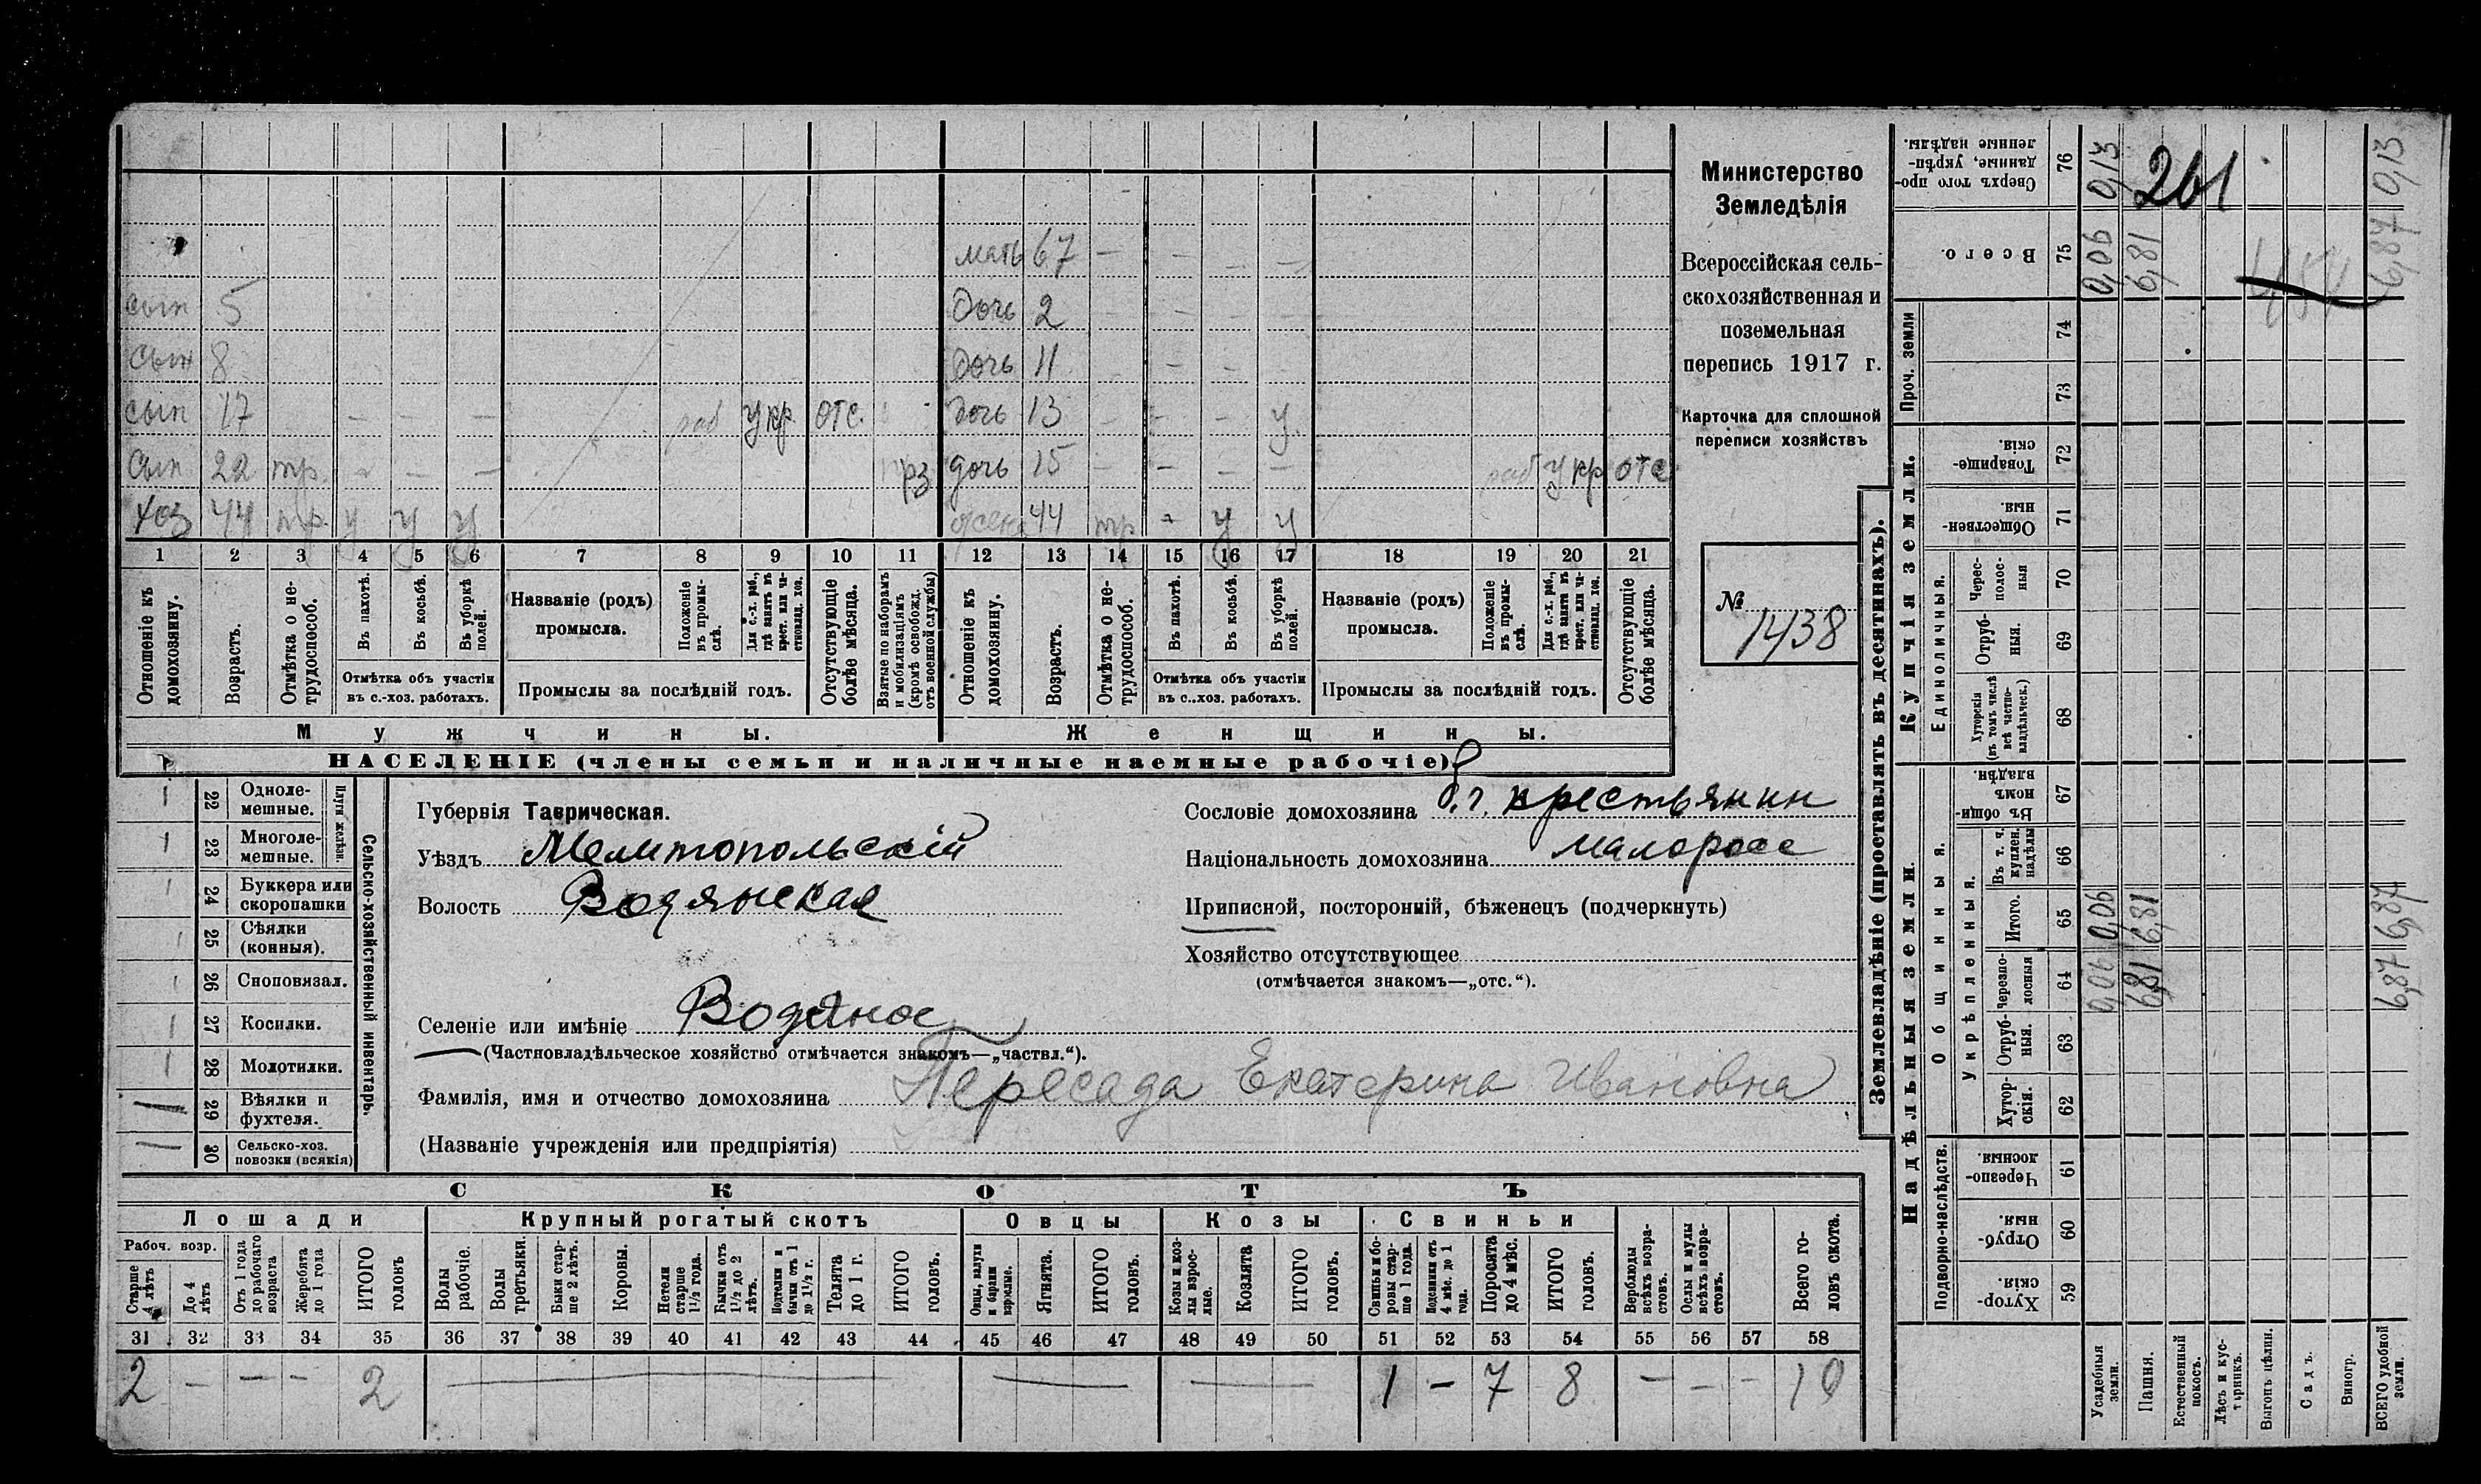 мать 67 — — — —
сын 5 дочь 2
сын 8 дочь 11 — —
сын 17 — — — раб укр отс. дочь 13 — — — у
сын 22 тр. — — — дочь 15 — — — — раб укр отс
хоз 44 тр. у у у жена 44 тр — у у
1 2 3 4 5 6 7 8 9 10 11 12 13 14 15 16 17 18 19 20 21
Отношеніе къ домохозяину.
Возрастъ.
Отмѣтка о нетрудоспособ.
Въ пахотѣ.
Въ косьбѣ.
Въ уборкѣ полей.
Отмѣтка объ участіи
въ с.-хоз. работахъ.
Названіе (родъ)
промысла.
Положеніе въ промыслѣ.
Для с.-х. раб., гдѣ занятъ въ крест. или частновлад. хоз.
Промыслы за послѣдній годъ.
Отсутствующіе болѣе мѣсяца.
Взятые по наборамъ и мобилизаціямъ (кромѣ освобожд. отъ военной службы)
Отношеніе къ домохозяину.
Возрастъ.
Отмѣтка о нетрудоспособ.
Въ пахотѣ.
Въ косьбѣ.
Въ уборкѣ полей.
Отмѣтка объ участіи
въ с..хоз. работахъ.
Названіе (родъ)
промысла.
Положеніе въ промыслѣ.
Для с.-х. раб., гдѣ занята въ крест. или частновлад. хоз.
Промыслы за послѣдній годъ.
Отсутствующіе болѣе мѣсяца.
Мужчины.
Женщины.
НАСЕЛЕНІЕ (члены семьи и наличные наемные рабочіе).
Министерство
Земледѣлія
Всероссійская сель-
скохозяйственная и
поземельная
перепись 1917 г.
Карточка для сплошной
переписи хозяйствъ
№ 1438
Сельско-хозяйственный инвентарь.
Плуги желѣзн.
22 Однолемешные.
1 23 Многолемешные.
24 Буккера или скоропашки
25 Сѣялки (конныя).
26 Сноповязал.
27 Косилки.
28 Молотилки.
29 Вѣялки и фухтеля.
30 Сельско-хоз. повозки (всякія)
Губернія Таврическая.
Уѣздъ Мелитопольскій
Волость Водянская
Селеніе или имѣніе Водяное
(Частновладѣльческое хозяйство отмѣчается знакомъ—„частвл.“).
Фамилія, имя и отчество домохозяина Пересада Екатерина Ивановна
(Названіе учрежденія или предпріятія)
Сословіе домохозяина крестьянин
Національность домохозяина малоросс
Приписной, посторонній, бѣженецъ (подчеркнуть)
Хозяйство отсутствующее
(отмѣчается знакомъ—„отс.“).
СКОТЪ
Лошади
Крупный рогатый скотъ
Овцы
Козы
Свиньи
Рабоч. возр.
Старше 4 лѣтъ
До 4 лѣтъ
Отъ 1 года до рабочаго возраста
Жеребята до 1 года
ИТОГО головъ
Волы рабочіе.
Волы третьяки.
Быки старше 2 лѣтъ.
Коровы.
Нетели старше 1½ года.
Бычки отъ 1½ до 2 лѣтъ.
Подтелки и бычки отъ 1 до 1½ г.
Телята до 1 г.
ИТОГО головъ.
Овцы, валухи и бараны взрослые.
Ягнята.
ИТОГО головъ.
Козы и козлы взрослые.
Козлята
ИТОГО головъ.
Свиньи и боровы старше 1 года.
Подсвинки отъ 4 мѣс. до 1 года.
Поросята до 4 мѣс.
ИТОГО головъ.
Верблюды всѣхъ возрастовъ.
Ослы и мулы всѣхъ возрастовъ.
Всего головъ скота.
31 32 33 34 35 36 37 38 39 40 41 42 43 44 45 46 47 48 49 50 51 52 53 54 55 56 57 58
2 — — — 2 — — — 1 — 7 8 — — — 10
Землевладѣніе (проставлять въ десятинахъ).
Надѣльныя земли.
Купчія земли.
Проч. земли
Подворно-наслѣдств.
Общинныя.
Укрѣпленныя.
Единоличныя.
Сверхъ того проданные, укрѣпленные надѣлы. 76 0,13 0,13
261
Всего. 75 0,06 6,81 6,87
74
73
Товарищескія. 72
Общественныя. 71
Чересполосныя 70
Отрубныя. 69
Хуторскія (въ томъ числѣ всѣ частновладѣльческ.) 68
Въ общинномъ владѣн. 67
Въ т. ч. куплен. надѣлы 66
Итого. 65 0,06 6,81 6,87
Черезполосныя 64 0,06 6,81 6,87
Отрубныя. 63
Хуторскія. 62
Черезполосныя. 61
Отрубныя. 60
Хуторскія. 59
Усадебныя земли.
Пашня.
Естественный покосъ.
Лѣсъ и кустарникъ.
Выгонъ цѣлин.
Садъ.
Виногр.
ВСЕГО удобной земли.